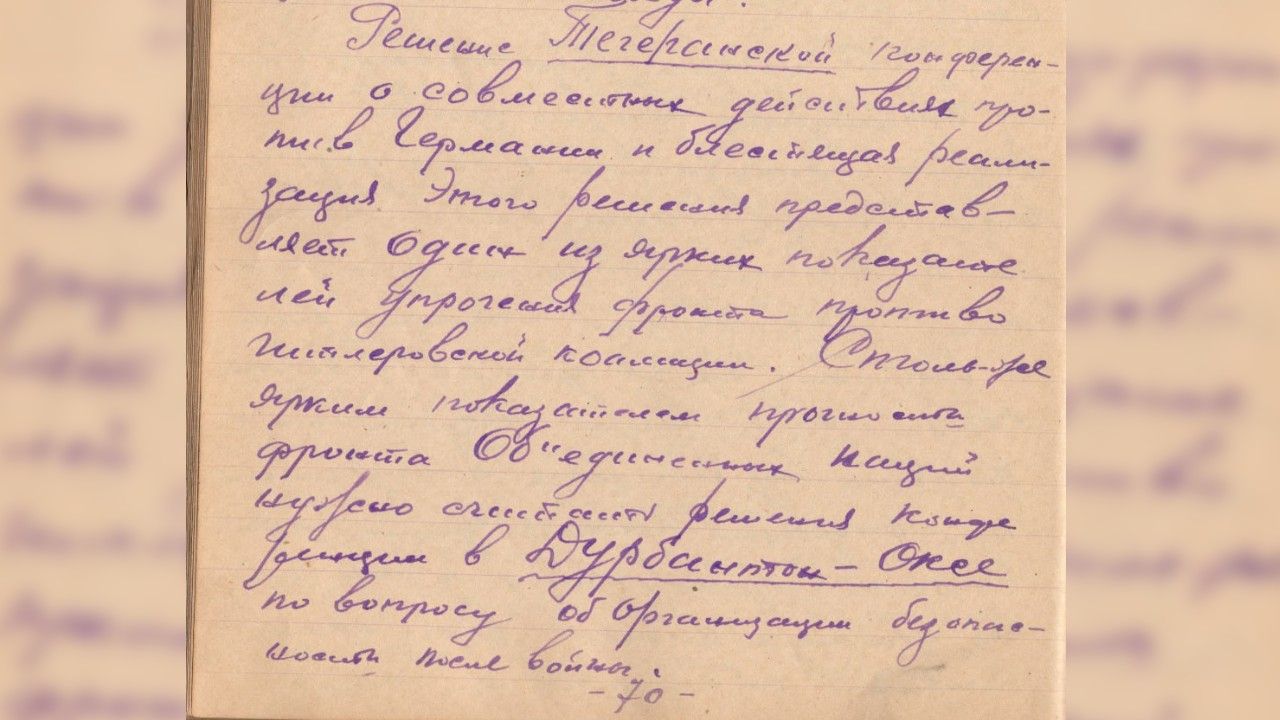 Решение Тегеранской конферен-
ции о совместных действиях про-
тив Германии и блестящая реали-
зация этого решения представ-
ляет один из ярких показате
лей упрочения фронта противо
гитлеровской коалиции. Столь-же
ярким показателем прочности
фронта Об"единенных наций
нужно считать решения конфе
ренции в Думбантон-Оксе
по вопросу об организации безопас-
ности после войны.
-70-